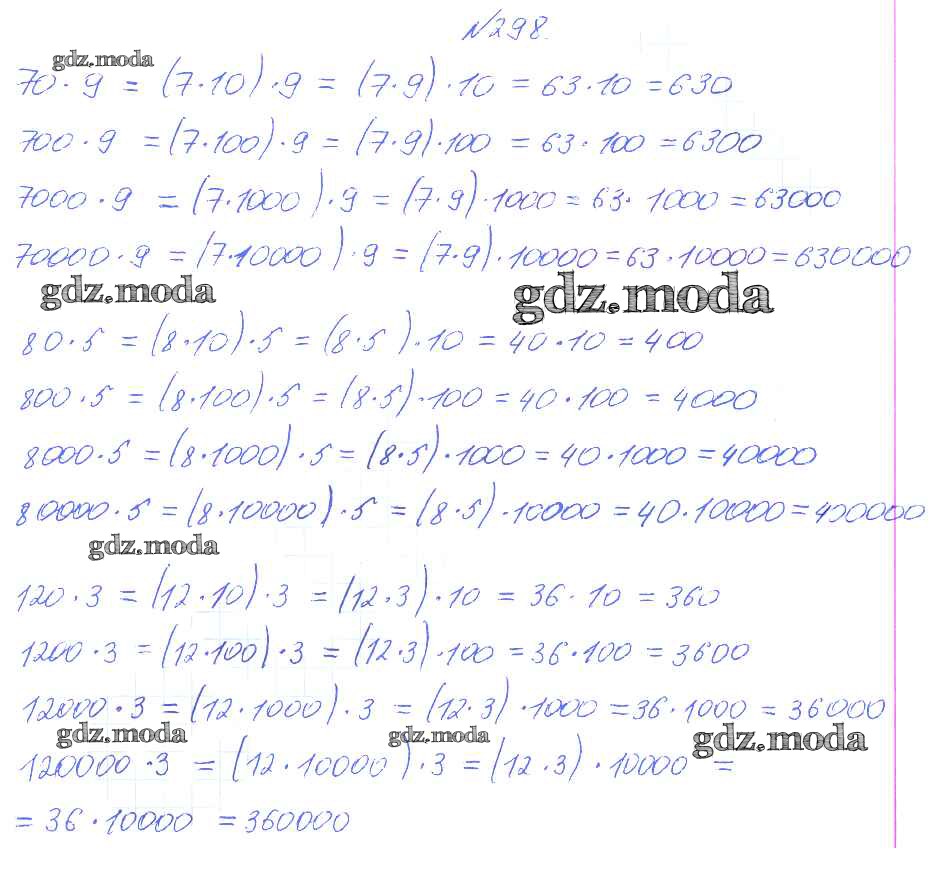 №298.
gdz.moda
70·9 = (7·10)·9 = (7·9)·10 = 63·10 = 630
700·9 = (7·100)·9 = (7·9)·100 = 63·100 = 6300
7000·9 = (7·1000)·9 = (7·9)·1000 = 63·1000 = 63000
70000·9 = (7·10000)·9 = (7·9)·10000 = 63·10000 = 630000
gdz.moda gdz.moda
80·5 = (8·10)·5 = (8·5)·10 = 40·10 = 400
800·5 = (8·100)·5 = (8·5)·100 = 40·100 = 4000
8000·5 = (8·1000)·5 = (8·5)·1000 = 40·1000 = 40000
80000·5 = (8·10000)·5 = (8·5)·10000 = 40·10000 = 400000
gdz.moda
120·3 = (12·10)·3 = (12·3)·10 = 36·10 = 360
1200·3 = (12·100)·3 = (12·3)·100 = 36·100 = 3600
12000·3 = (12·1000)·3 = (12·3)·1000 = 36·1000 = 36000
gdz.moda gdz.moda gdz.moda
120000·3 = (12·10000)·3 = (12·3)·10000 =
= 36·10000 = 360000